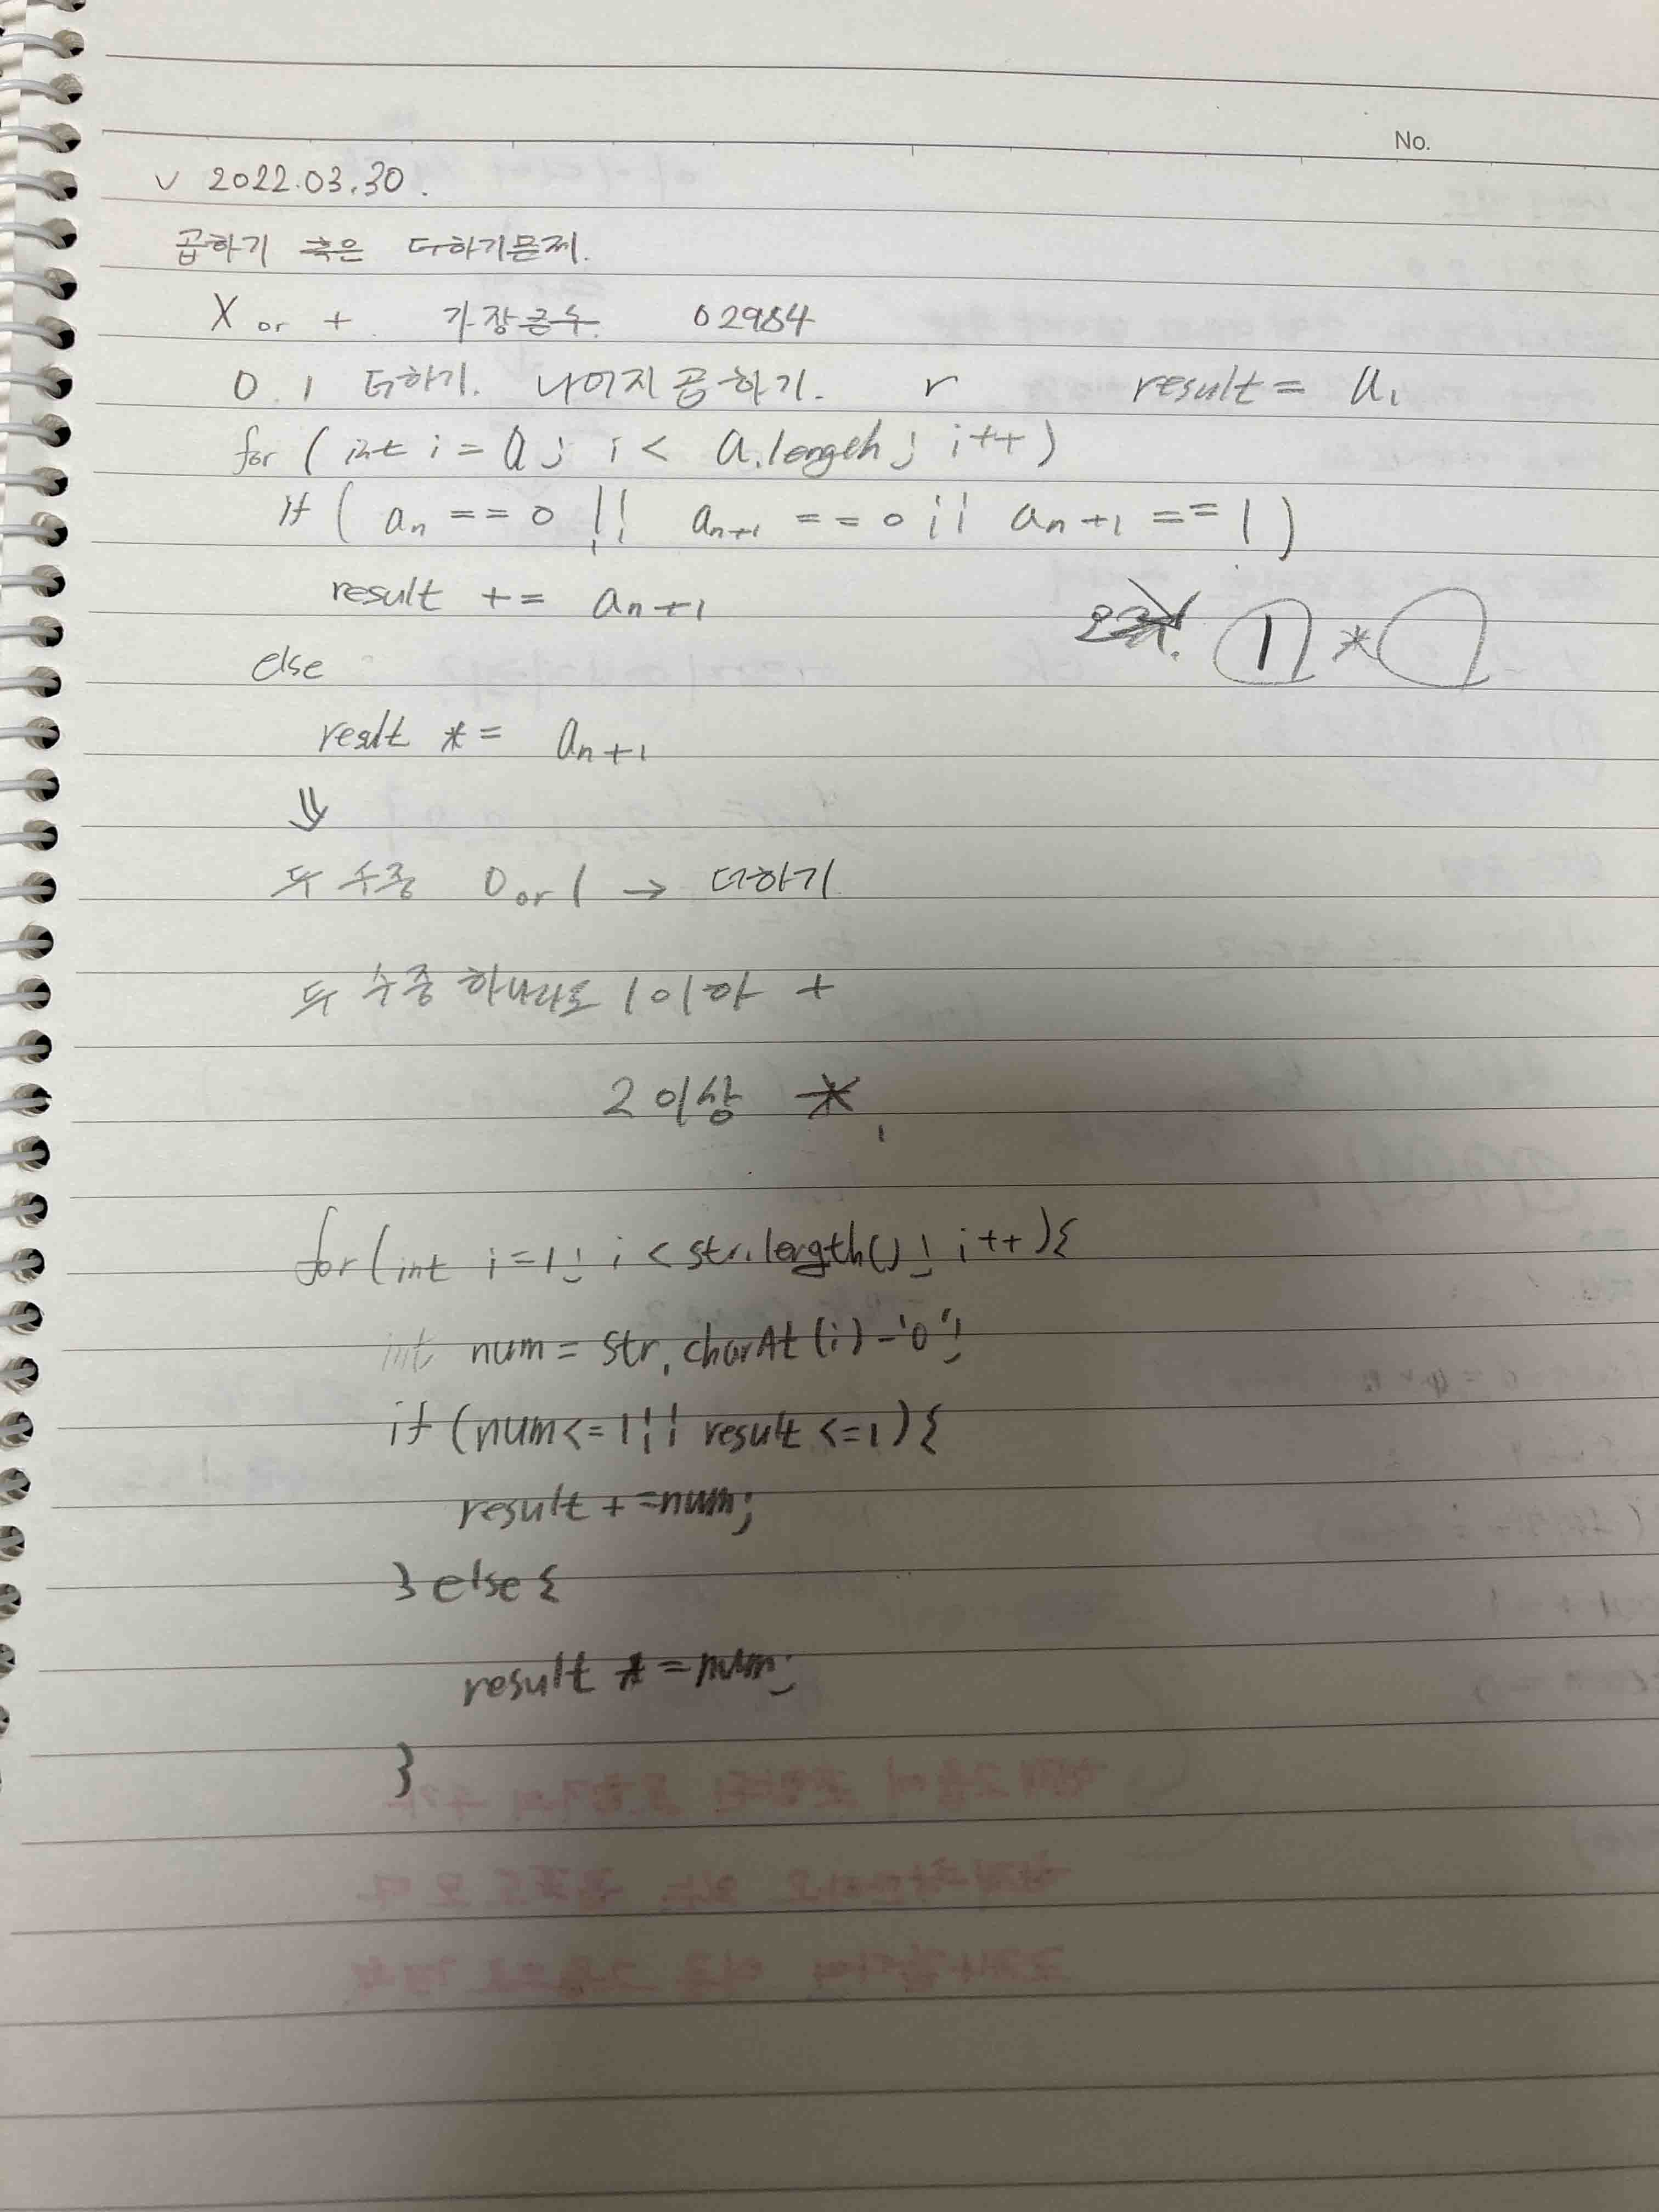 No.
v 2022.03.30.
곱하기 혹은 더하기문제.
X or + 가장큰수. 02984
0. 1 더하기. 나머지 곱하기. r result = a1
for ( int i = 0; i < a.length; i++)
If ( an == 0 || an+1 == 0 || an+1 == 1 )
result += an+1
1 *
else
result *= an+1
⇓
두 수중 0 or 1 → 더하기
두 수중 하나라도 1이하 +
2 이상 *
for (int i=1; i < str.length(); i++){
int num = str.charAt(i)-'0';
if (num<=1 || result <=1) {
result +=num;
} else {
result *=num;
}